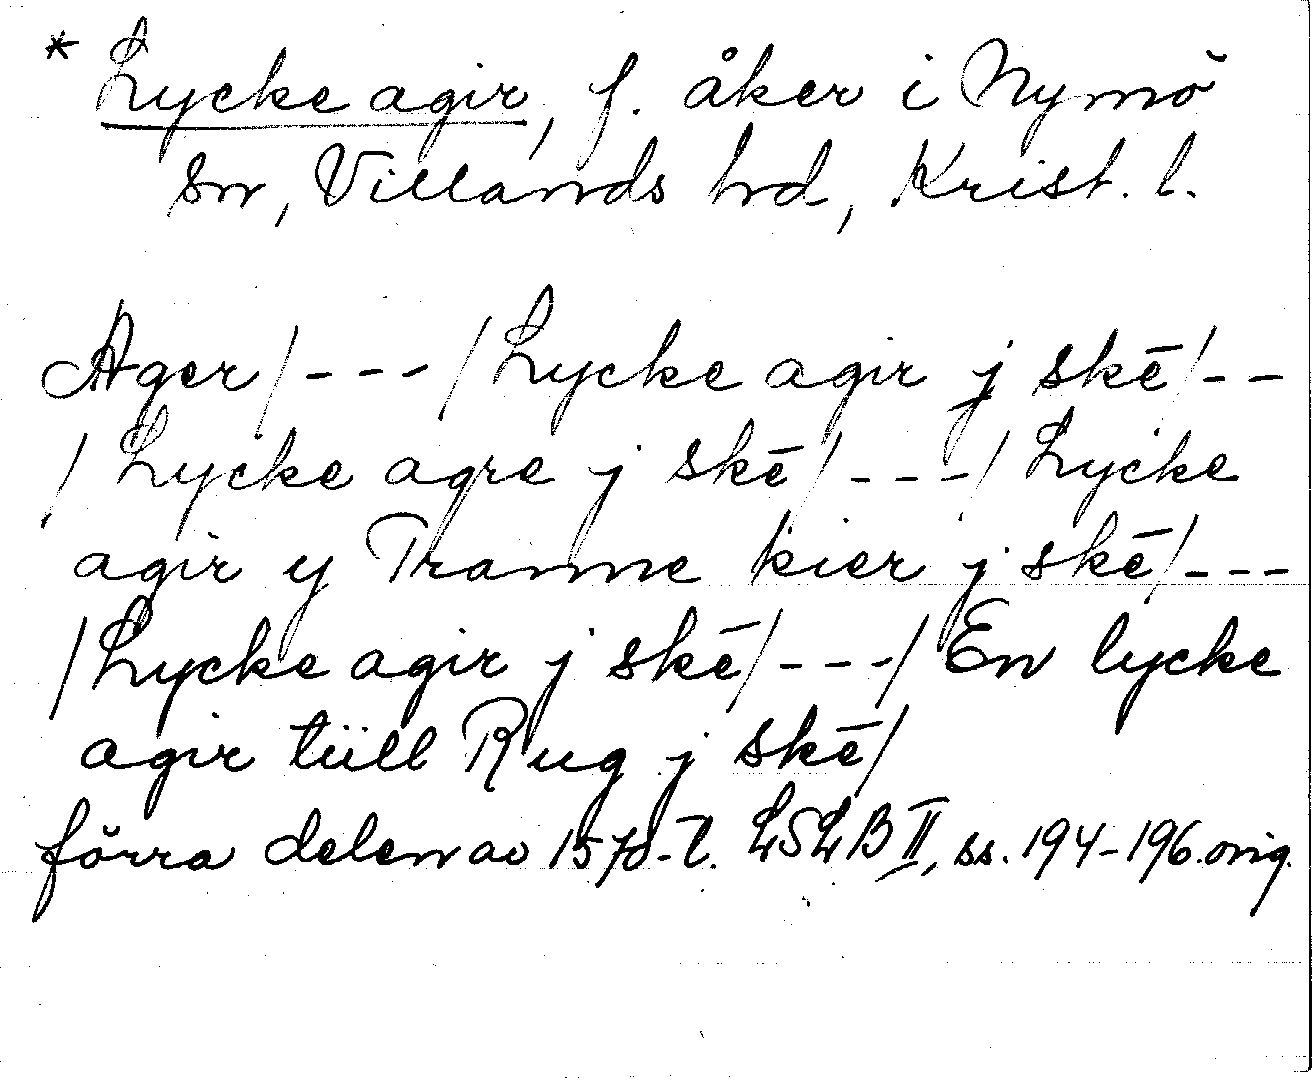 * Lycke agir, f. åker i Nymö
sn, Villands hd, Krist. l.
Ager/---/Lycke agir j skē/--
/Lycke agre j skē/---/Lycke
agir y Tranne kier j skē/---
/Lycke agir j skē/---/En lycke
agir tüll Rug j skē/
förra delen av 1570-t. LSLB II, ss. 194-196. orig.